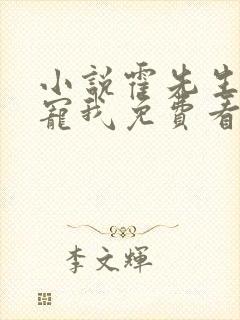 小説霍先生
寵我免費看
李文輝